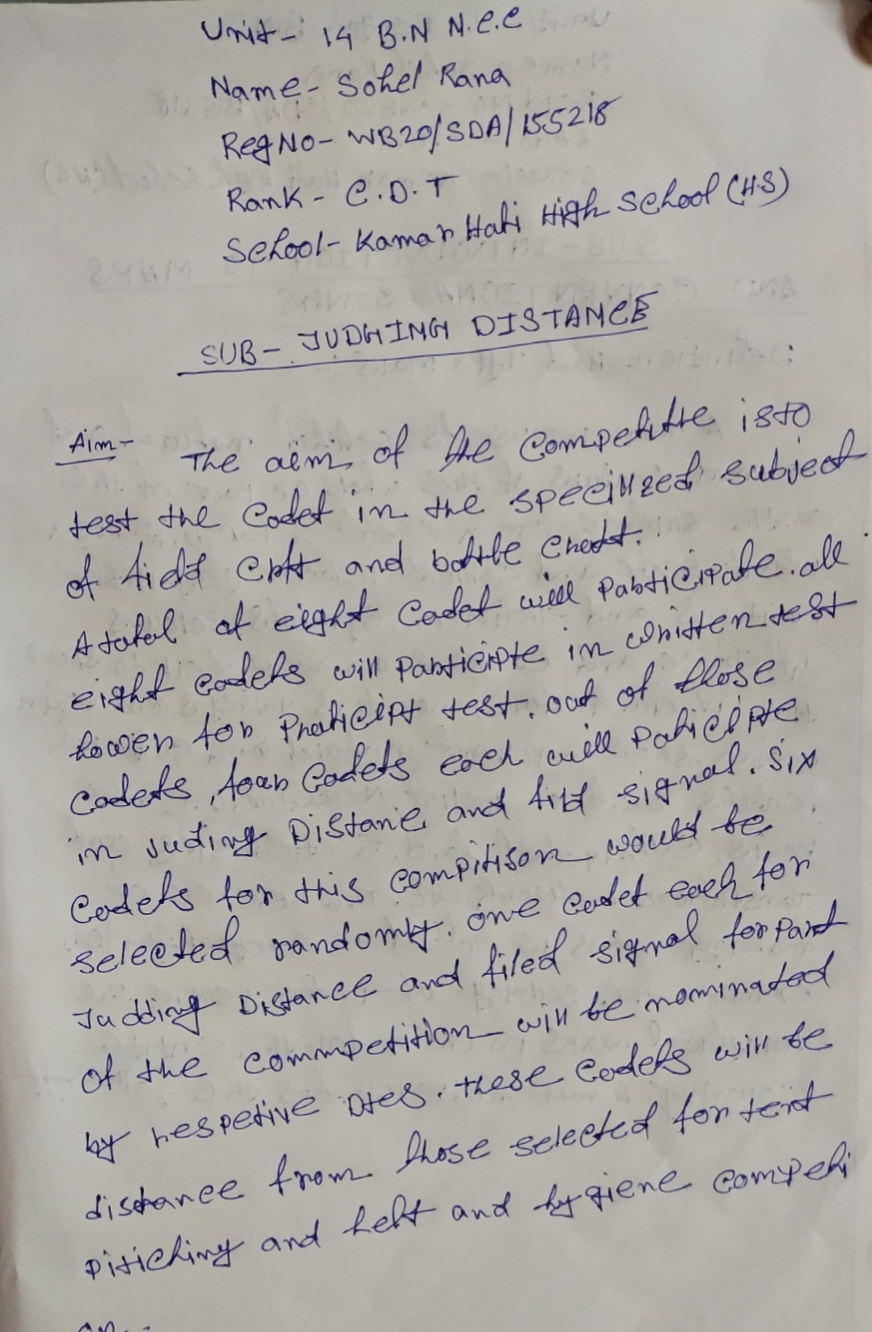 Unit- 14 B.N N.C.C
Name- Sohel Rana
Reg No- WB20/SDA/155218
Rank - C.D.T
School- Kamar Hati High School (H.S)
SUB- JUDGING DISTANCE
Aim- The aim of the Competutte is to
test the Codet in the specilized subject
of field Cpft and bottle Chott.
A totel of eight Codet will Participate. all
eight Codets will Participte in written test
howen for Praticipt test. out of those
Codets, foar Codets each will Paticipte
in Juding Distane and fild signal. Six
Codets for this compitison would be
selected randomly. One Codet each for
Judding Distance and filed signal for Part
of the commpetition will be nominated
by respetive Dtes. these Codets will be
distance from those selected for tent
pitiching and helt and hygiene competi